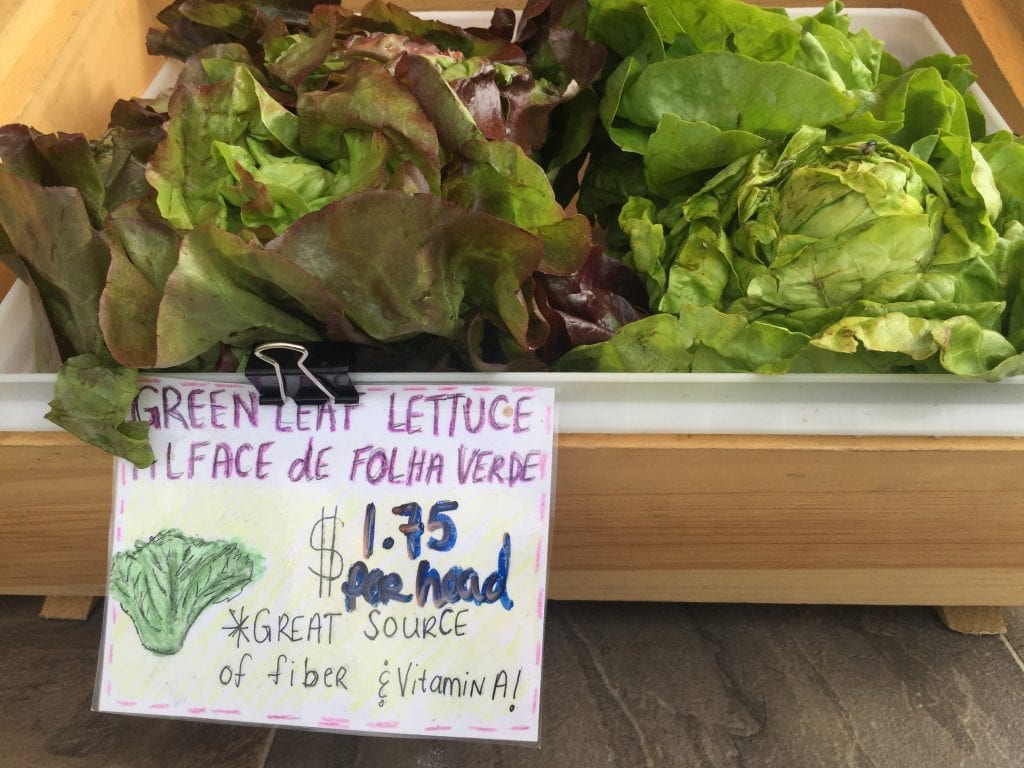 GREEN LEAF LETTUCE
ALFACE de FOLHA VERDE
$ 1.75
per head
*GREAT SOURCE
of fiber & Vitamin A!